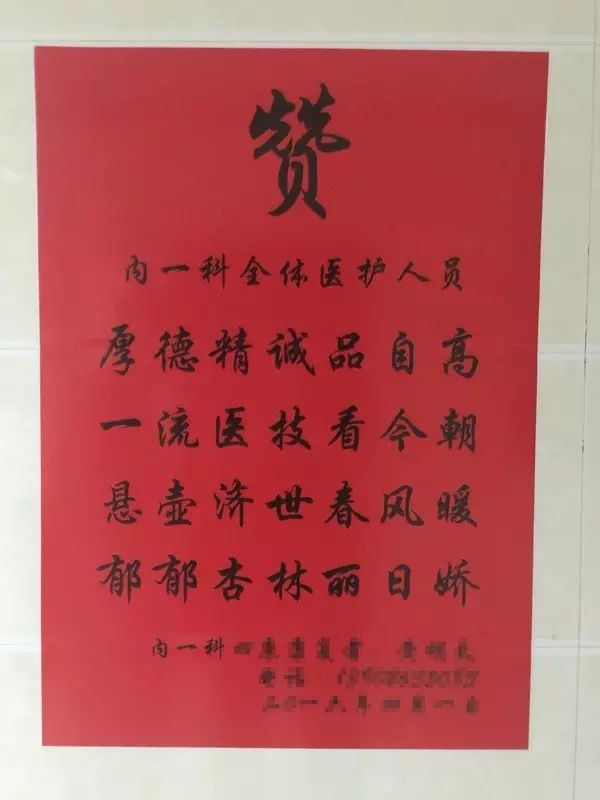 赞
内一科全体医护人员
厚德精诚品自高
一流医技看今朝
悬壶济世春风暖
郁郁杏林丽日娇
内一科